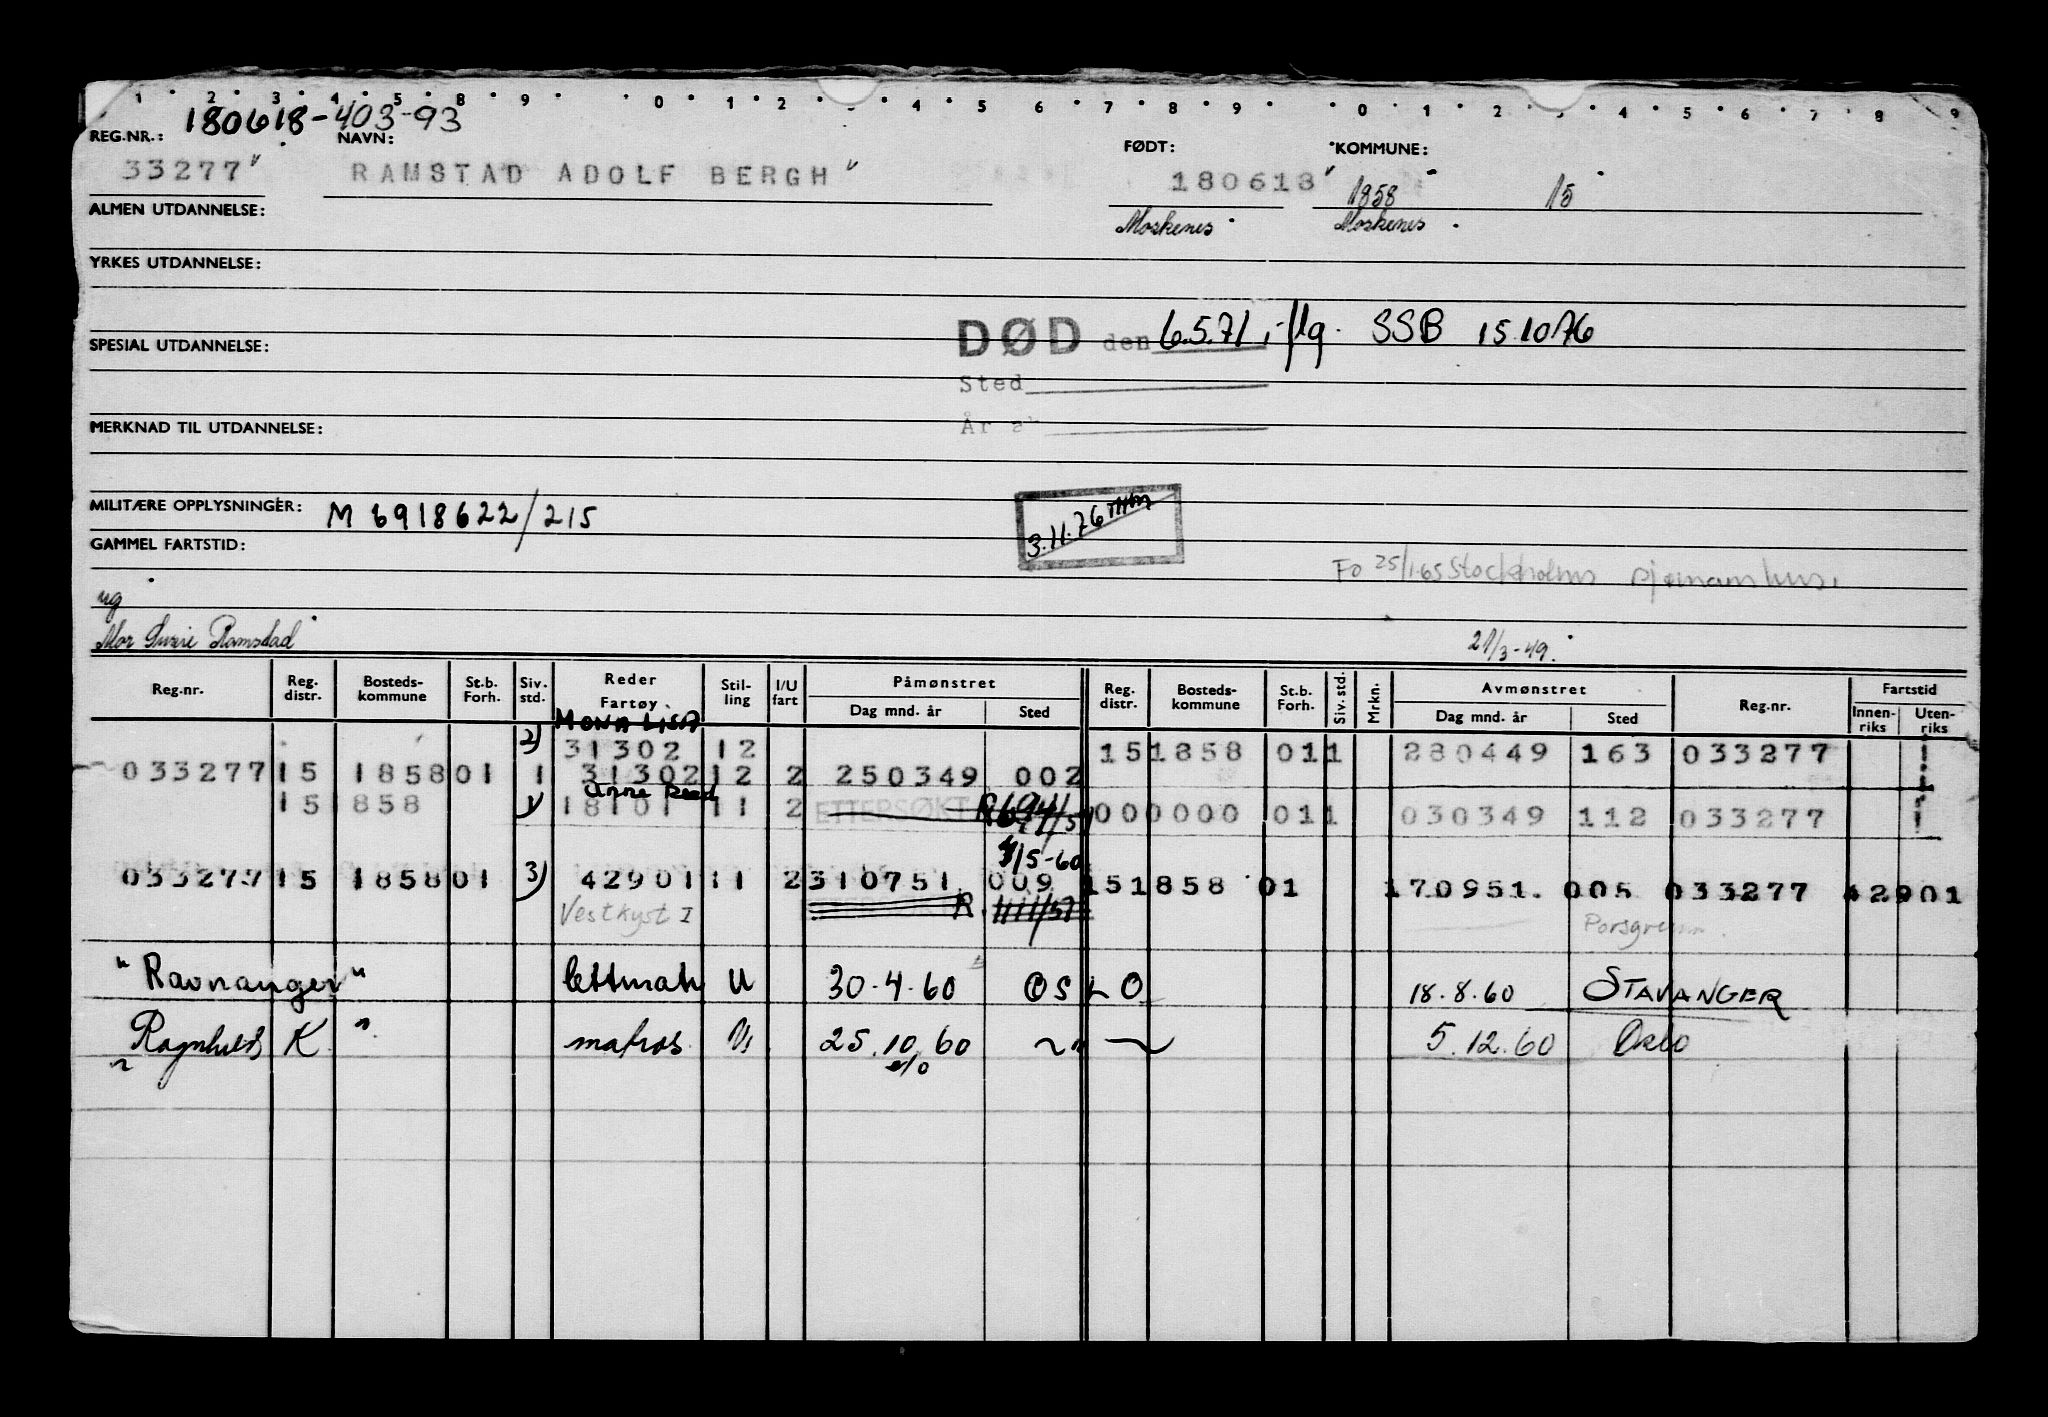 1 2 3 4 5 8 9 0 1 2 4 5 6 7 8 9 0 1 2 3 4 5 6 7 8 9
180618-403-93
REG.NR.: NAVN: FØDT: KOMMUNE:
33277 RAMSTAD ADOLF BERGH 180618 1858 15
ALMEN UTDANNELSE: Moskenes Moskenes
YRKES UTDANNELSE:
DØD den 6.5.71 iflg. SSB 15.10.76
SPESIAL UTDANNELSE:
Sted
År
MERKNAD TIL UTDANNELSE:
MILITÆRE OPPLYSNINGER: M 6918622/215
3.11.76
GAMMEL FARTSTID:
Fo 25/1.65 Stockholms sjømannshus.
ug
Mor Ramstad 21/3-49.
Reg.nr. Reg. distr. Bosteds-kommune St.b. Forh. Siv. std. Reder Fartøy Stil-ling I/U fart Påmønstret Dag mnd. år Sted Reg. distr. Bosteds-kommune St.b. Forh. Siv. std. Mrkn. Avmønstret Dag mnd. år Sted Reg.nr. Fartstid Innen-riks Uten-riks
MONA LISA
2) 31302 12 15 1858 01 1 280449 163 033277
033277 15 1858 01 1 31302 12 2 250349 002
Anne
15 858 1) 18101 11 2 ETTERSØKT 000000 01 1 030349 112 033277
4/5-60
033277 15 1858 01 3) 42901 11 2 310751 009 15 1858 01 170951. 005 033277 42901
Vestkyst I R. Porsgrunn.
"Ravnanger" lettmatr U 30.4.60 OSLO 18.8.60 STAVANGER
Ragnhilds K " matros 25.10.60 " 5.12.60 Oslo